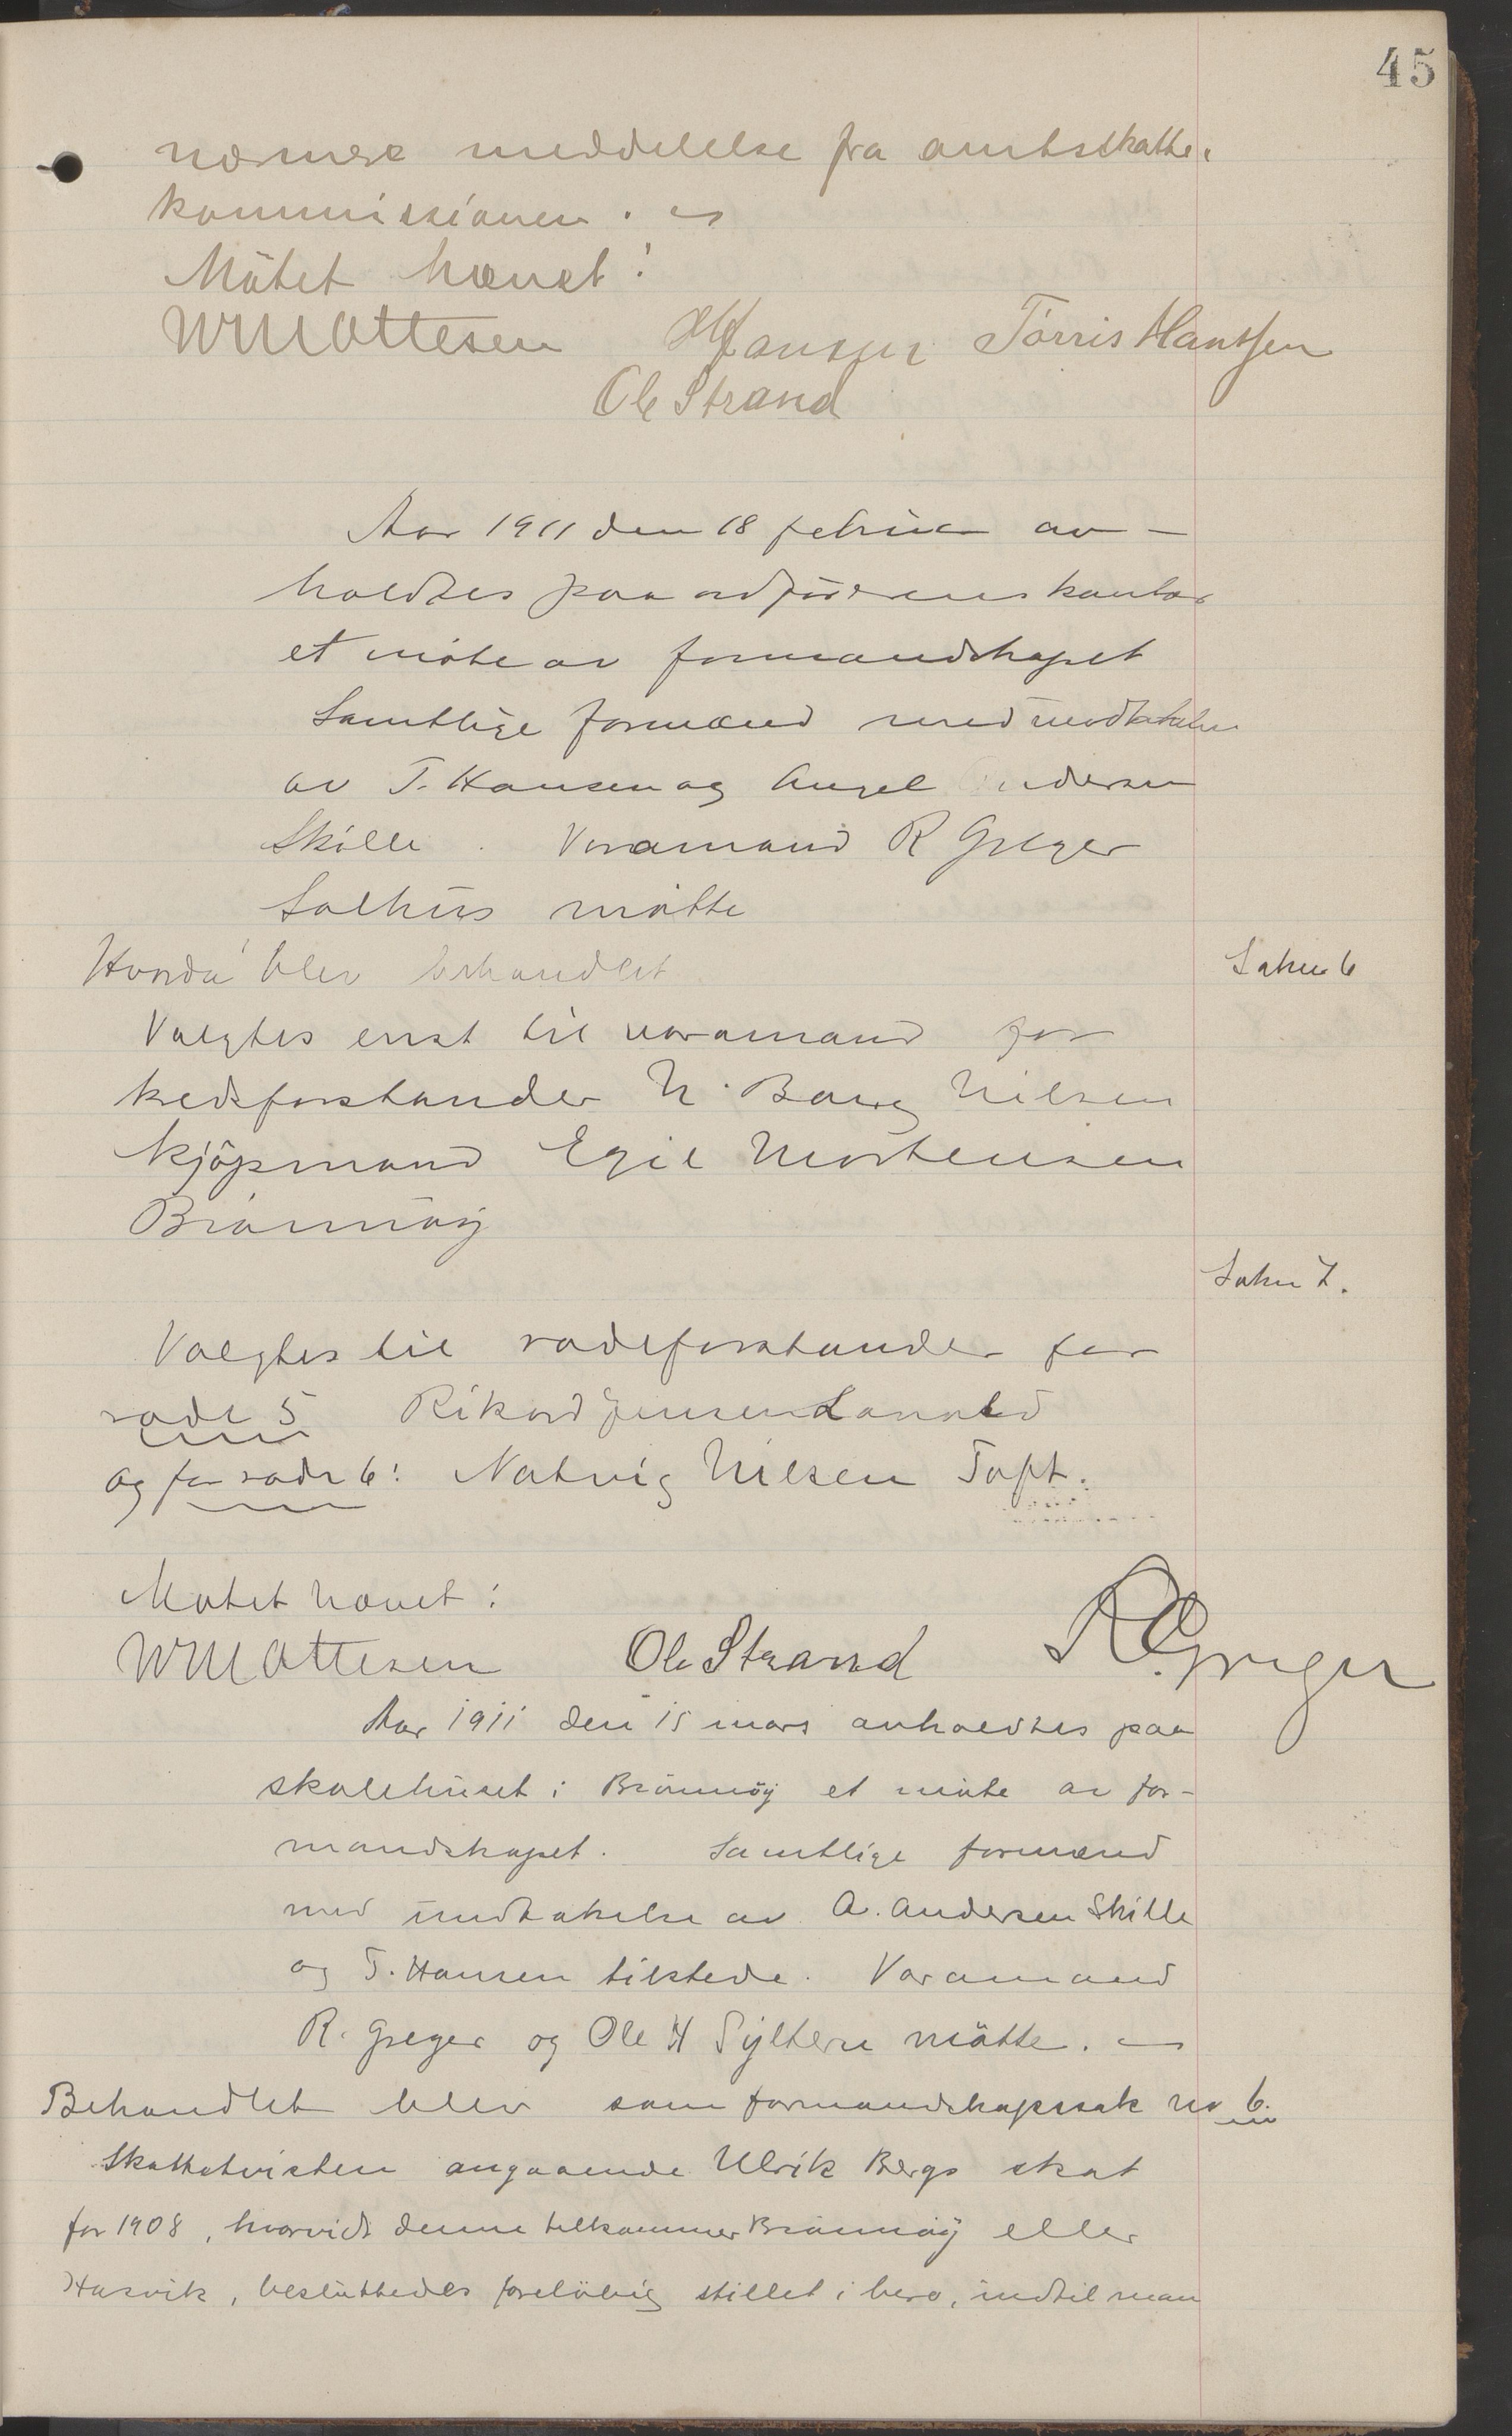 45
nærmere meddelelse fra amtsskatte-
kommissionen.
Mötet hævet!
WMOttesen H Hansen Tørris Hanssen
Ole Strand
Aar 1911 den 18 februar av-
holdtes paa ordförerens kontor
et möte av formandskapet
Samtlige formænd med undtakelse
av T. Hansen og Angel Andersen
Skille. Varamand R Greger
Salhus mötte
Hvorda blev behandlet Sak nr 6
Valgtes enst til varamand for
kredsforstander N. Borg Nilsen
kjöpmand Egil Mortensen
Brönnöy
Sak nr 7.
Valgtes til rodeforstander for
rode 5 Rikard Jensen
og for rode 6: Natvig Nilsen Toft.
Mötet hævet:
WMOttesen Ole Strand R Greger
Aar 1911 den 15 mars avholdtes paa
skolehuset i Brönnöy et möte av for-
mandskapet. Samtlige formænd
med undtakelse av A. Andersen Skille
og T. Hansen tilstede. Varamand
R. Greger og Ole H Sylteren mötte.
Behandlet blev som formandskapssak nr 6.
Skattetvisten angaaende Ulrik Bergs skat
for 1908, hvorvidt denne tilkommer Brönnöy eller
Hasvik, besluttedes forelöbig stillet i bero, indtil man